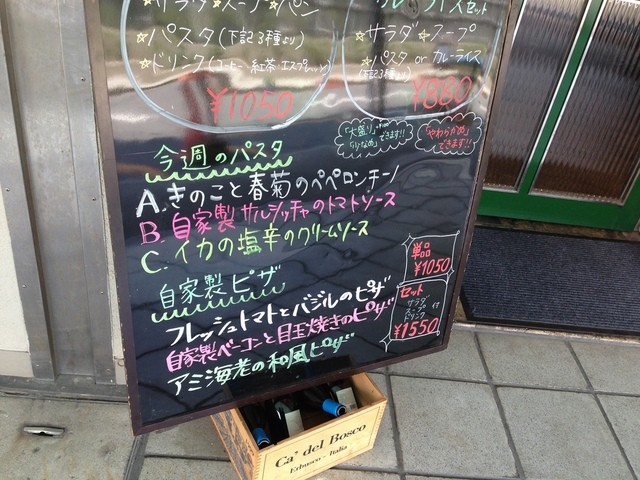 ☆サラダ☆スープ☆パン
☆パスタ(下記3種より)
☆ドリンク(コーヒー・紅茶・エスプレッソ)
¥1050
カレーライスセット
☆サラダ☆スープ
☆パスタ or カレーライス
(下記3種より)
¥880
「大盛り」
「少なめ」できます!!
「やわらかめ」
できます!!
今週のパスタ
A. きのこと春菊のペペロンチーノ
B. 自家製サルシッチャのトマトソース
C. イカの塩辛のクリームソース
自家製ピザ
フレッシュトマトとバジルのピザ
自家製ベーコンと目玉焼きのピザ
アミ海老の和風ピザ
単品
¥1050
セット
サラダ
ドリンク
付
¥1550
Ca' del Bosco
Erbusco - Italia